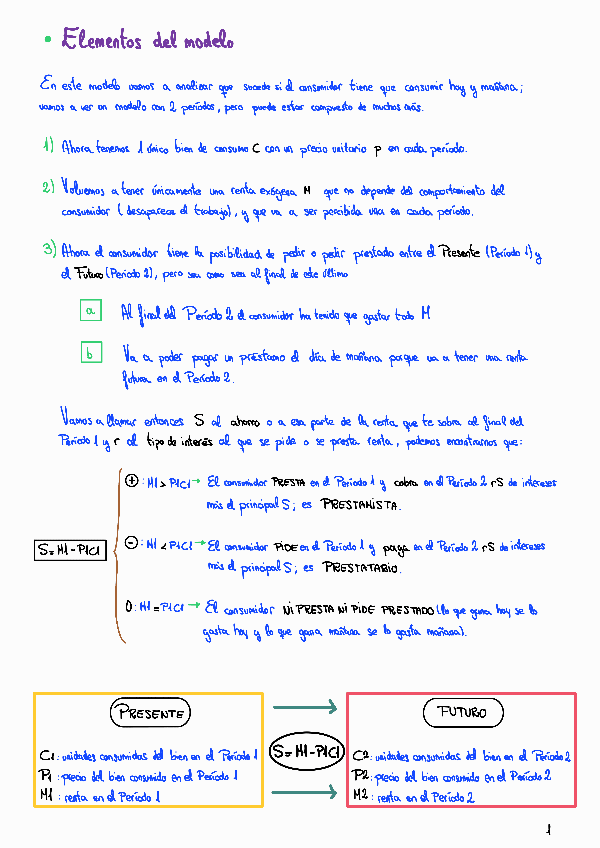 • Elementos del modelo
En este modelo vamos a analizar que sucede si el consumidor tiene que consumir hoy y mañana;
vamos a ver un modelo con 2 períodos, pero puede estar compuesto de muchos más.
1) Ahora tenemos 1 único bien de consumo C con un precio unitario p en cada período.
2) Volvemos a tener únicamente una renta exógena M que no depende del comportamiento del
consumidor (desaparece el trabajo), y que va a ser percibida una en cada período.
3) Ahora el consumidor tiene la posibilidad de pedir o pedir prestado entre el Presente (Período 1) y
el Futuro (Período 2), pero sea como sea al final de este último
a Al final del Período 2 el consumidor ha tenido que gastar todo M
b Va a poder pagar un préstamo el día de mañana porque va a tener una renta
futura en el Período 2.
Vamos a llamar entonces S al ahorro o a esa parte de la renta que te sobra al final del
Período 1 y r al tipo de interés al que se pide o se presta renta, podemos encontrarnos que:
S = M1 - P1C1
+ : M1 > P1C1 → El consumidor PRESTA en el Período 1 y cobra en el Período 2 rS de intereses
más el principal S; es PRESTAMISTA.
- : M1 < P1C1 → El consumidor PIDE en el Período 1 y paga en el Período 2 rS de intereses
más el principal S; es PRESTATARIO.
0 : M1 = P1C1 → El consumidor NI PRESTA NI PIDE PRESTADO (lo que gana hoy se lo
gasta hoy y lo que gana mañana se lo gasta mañana).
PRESENTE
C1: unidades consumidas del bien en el Período 1
P1: precio del bien consumido en el Período 1
M1: renta en el Período 1
S = M1 - P1C1
FUTURO
C2: unidades consumidas del bien en el Período 2
P2: precio del bien consumido en el Período 2
M2: renta en el Período 2
1